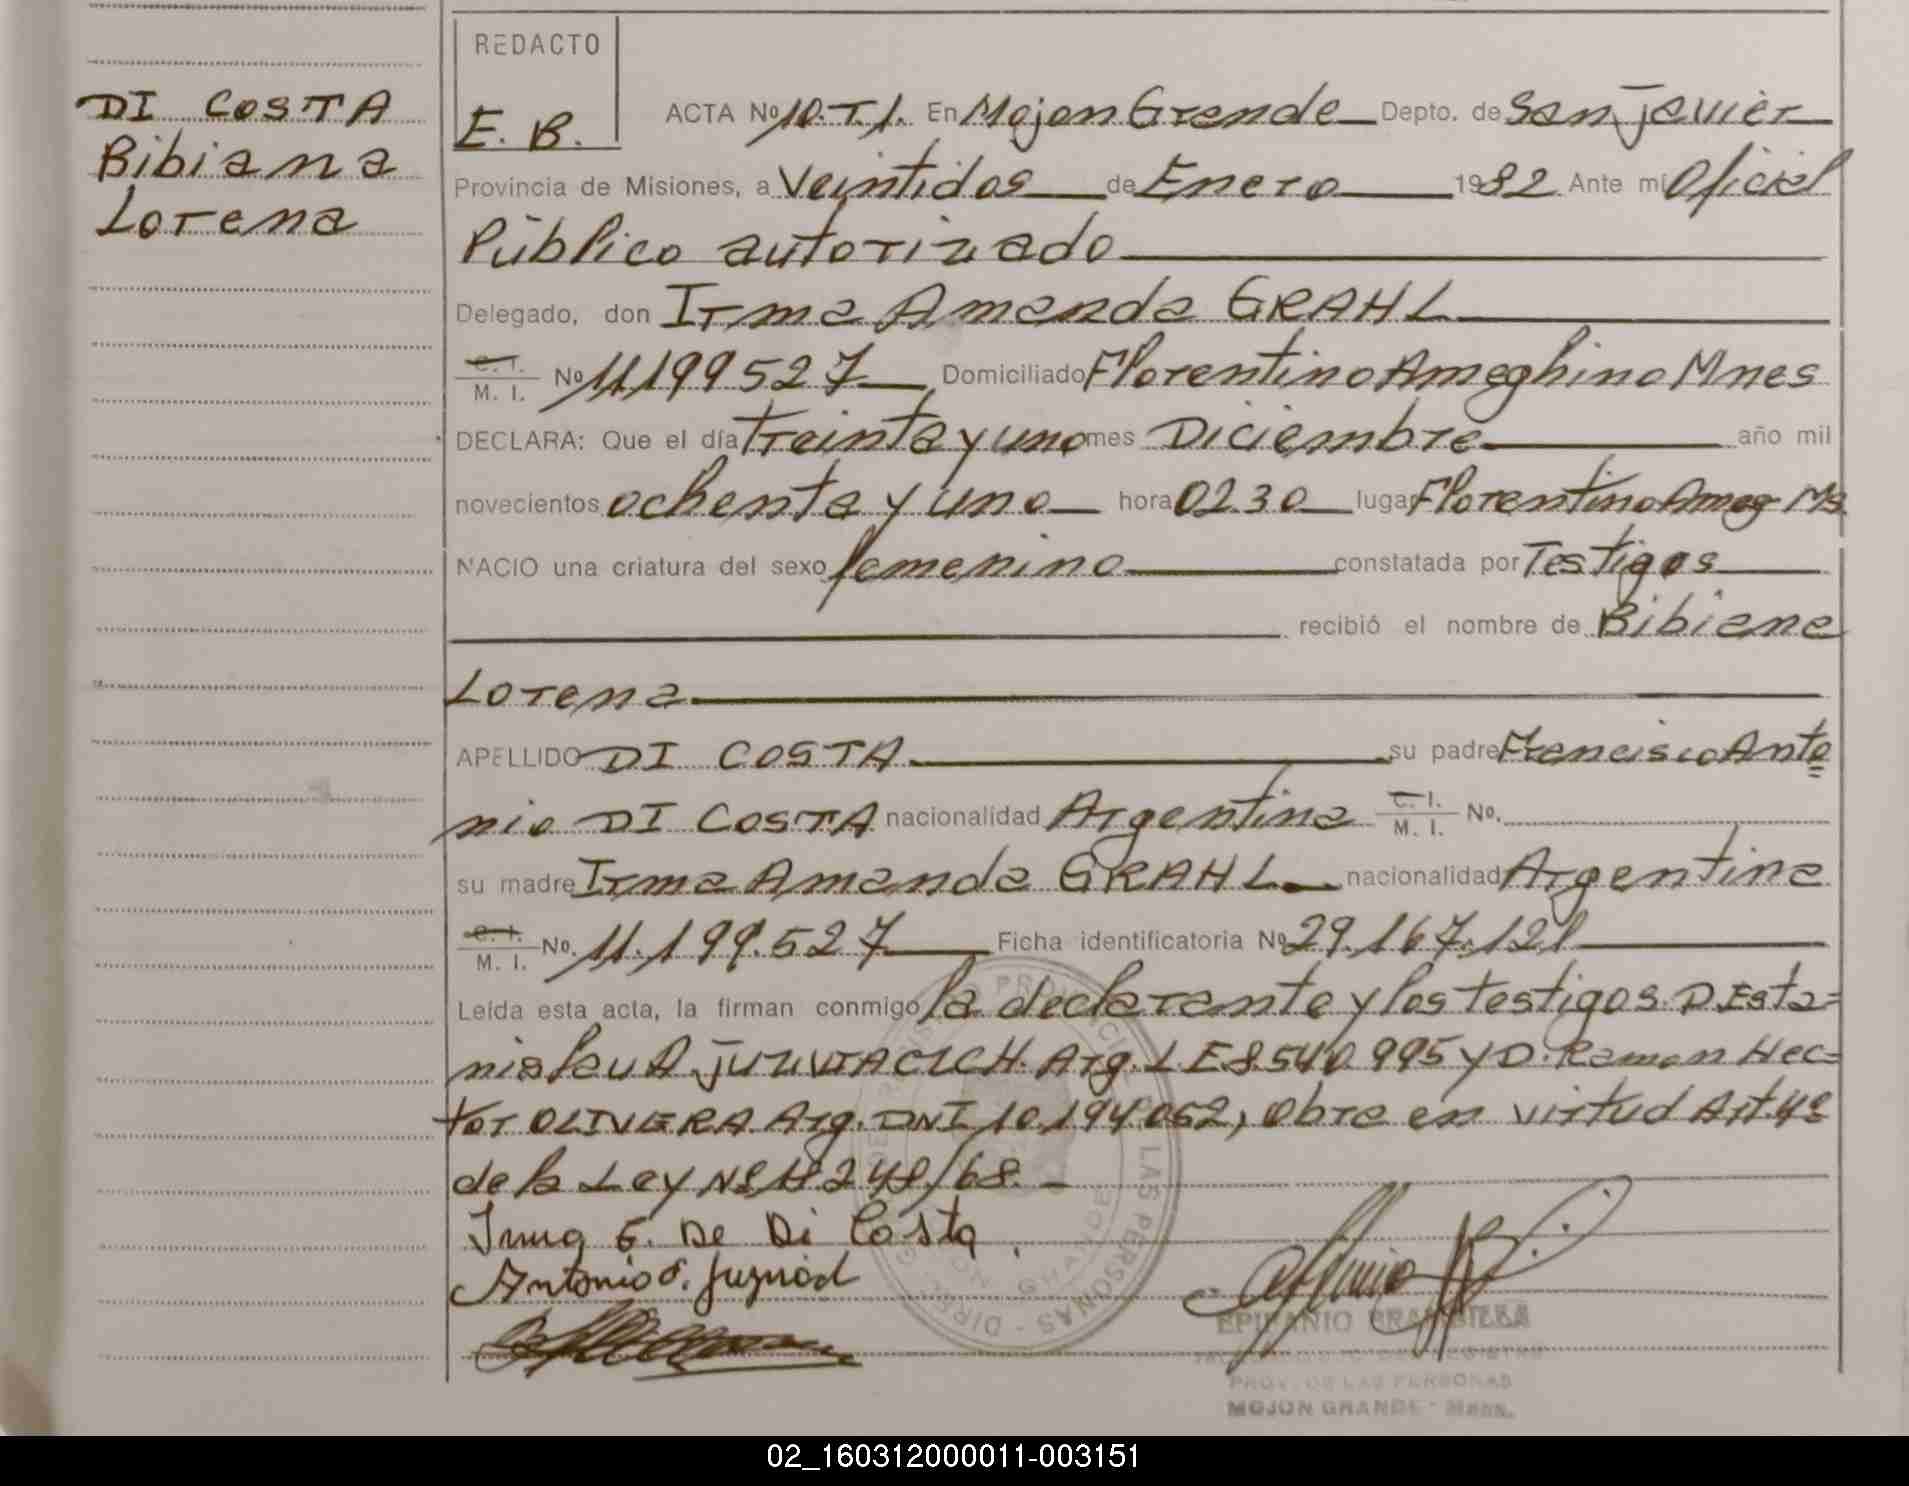 DI COSTA
Bibiana
Lorena
REDACTO
E. B.
ACTA Nº 10.T.1. En Mojon Grande Depto. de San Javier
Provincia de Misiones, a Veintidos de Enero 1982 Ante mi Oficial
Público autorizado
Delegado, don Irma Amanda GRAHL
C. I. / M. I. Nº 11199527 Domiciliado Florentino Ameghino Mnes
DECLARA: Que el día treinta y uno mes Diciembre año mil
novecientos ochenta y uno hora 0230 lugar Florentino Ameg Ms
NACIO una criatura del sexo femenino constatada por Testigos
recibió el nombre de Bibiana
Lorena
APELLIDO DI COSTA su padre Francisco Anto
nio DI COSTA nacionalidad Argentina C. I. / M. I. No.
su madre Irma Amanda GRAHL nacionalidad Argentina
C. I. / M. I. No. 11.199.527 Ficha identificatoria Nº 29.167.121
Leída esta acta, la firman conmigo la declarante y los testigos D Esta=
nislau A. Arg. L E 8.540.995 y D. Ramon Hec=
tor OLIVERA Arg. DNI 10.194.062, Obra en virtud Art. 4º
de la Ley Nº 18248/68.
Irma G. De Di Costa
Antonio
EPIFANIO
PROV. DE LAS PERSONAS
MOJON GRANDE - Mnes.
02_160312000011-003151